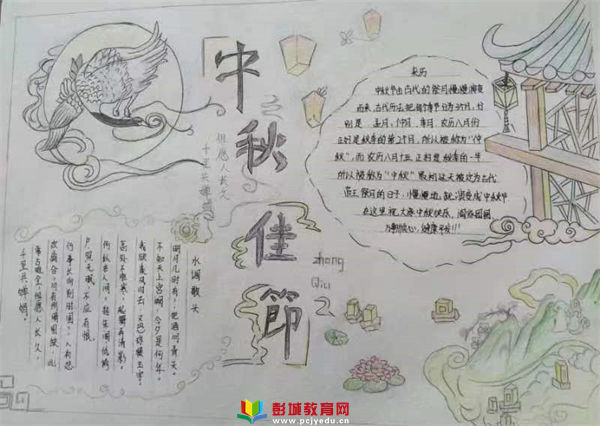 「中秋佳節」
但愿人长久
千里共婵娟
zhong
Qiu
来历
中秋节由古代的祭月慢慢演变
而来,古代历法把每个季节分为3个月,分
别是:孟月,仲月,季月,农历八月份
正好是秋季的第2个月,所以被称为“仲
秋”,而农历八月十五正好是秋季的一半
所以被称为“中秋”最初这天被定为古代
帝王祭月的日子,慢慢地就演变成中秋节
在这里祝大家中秋快乐,阖家团圆
万事顺心,健康平安!!!
水调歌头
明月几时有,把酒问青天。
不知天上宫阙,今夕是何年。
我欲乘风归去,又恐琼楼玉宇,
高处不胜寒,起舞弄清影,
何似在人间,转朱阁低绮
户照无眠,不应有恨
何事长向别时圆?人有悲
欢离合,月有阴晴圆缺,此
事古难全,但愿人长久,
千里共婵娟。
彭城教育网
www.pcjyedu.cn